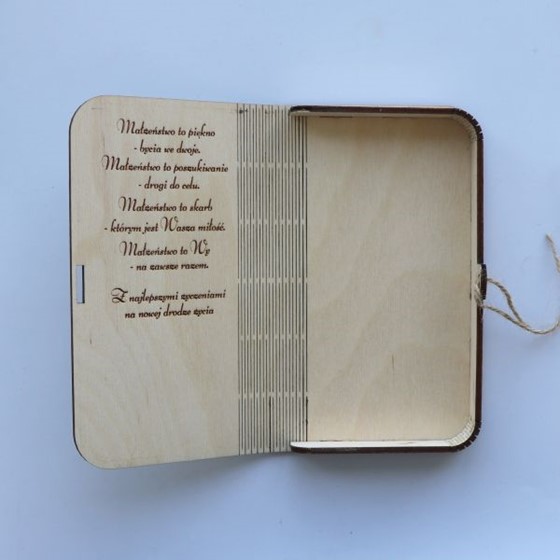 Małżeństwo to piękno
- bycia we dwoje.
Małżeństwo to poszukiwanie
- drogi do celu.
Małżeństwo to skarb
- którym jest Wasza miłość.
Małżeństwo to Wy
- na zawsze razem.
Z najlepszymi życzeniami
na nowej drodze życia